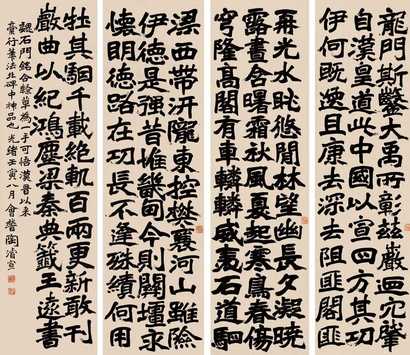 龍門斯鑿大禹所彰茲巖迺穴肇
自漢皇道此中國以宣四方其功
伊何既逸且康去深去阻匪閣匪
再光水眺悠閒林望幽長夕凝曉
露晝含曙霜秋風夏起寒鳥春傷
穹隆高閣有車轔轔威夷石道駟
梁西帶汧隴東控樊襄河山雖險
伊德是强昔惟畿甸今則關壃求
懷明德路在功長不逢殊績何用
牡其駰千載絶軌百兩更新敢刊
巖曲以紀鴻塵梁秦典籤王遠書
魏石門銘合隸草為一手可悟漢晉以来
真行筆法北碑中神品也光緒壬寅八月會稽陶濬宣